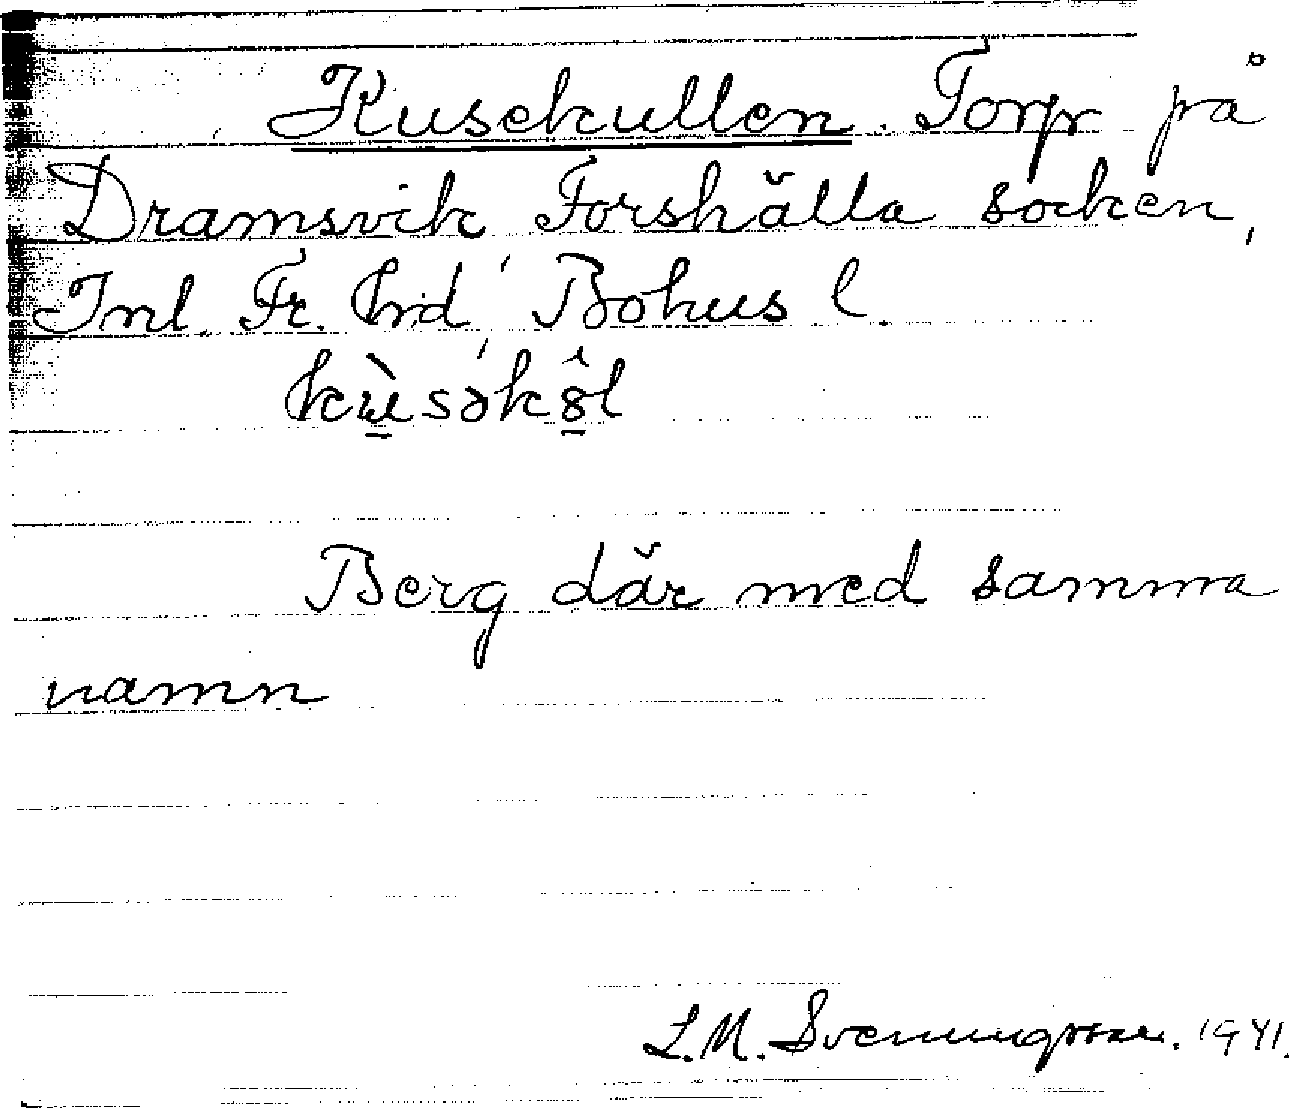 Kusekullen. Torp på
Dramsvik, Forshälla socken,
Inl. Fr. hrd, Bohus l.
Berg där med samma
namn
L.M. Svenungsson. 1941.